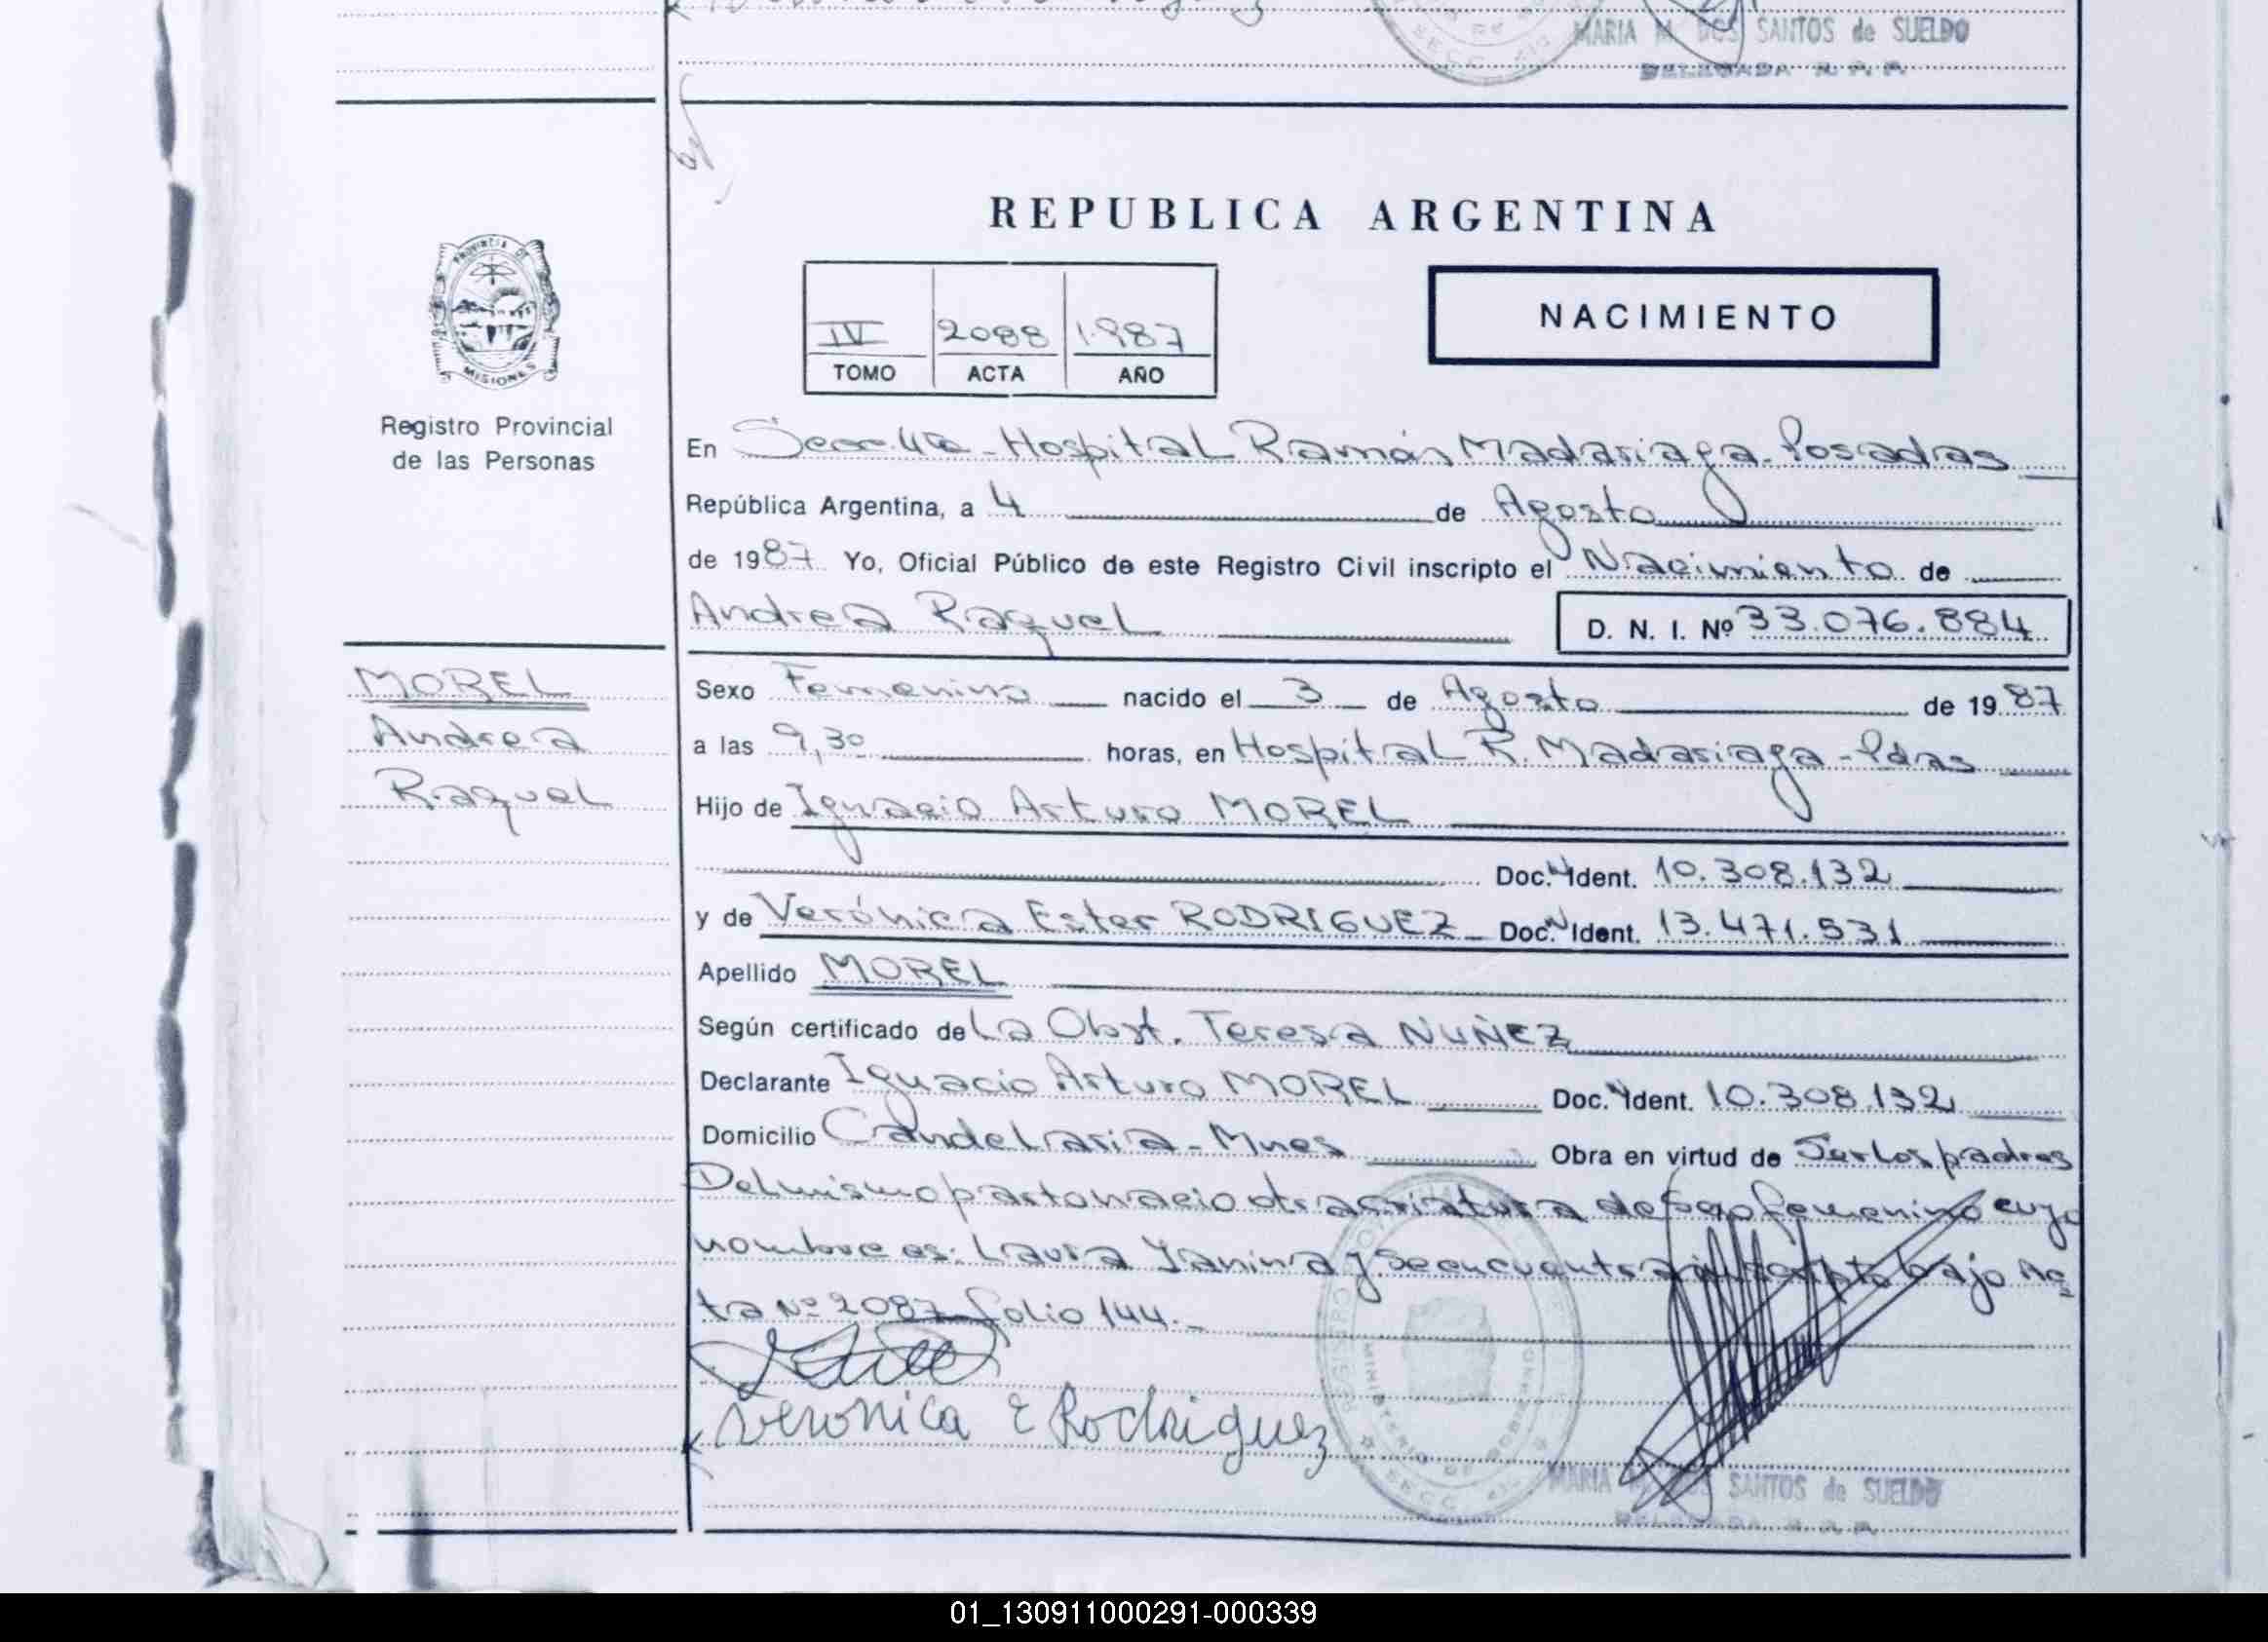 MARIA M. DOS SANTOS de SUELDO
DELEGADA R. P. P.
REPUBLICA ARGENTINA
PROVINCIA DE
MISIONES
Registro Provincial
de las Personas
IV 2088 1.987
TOMO ACTA AÑO
NACIMIENTO
En Secc. 4ta - Hospital Ramón Madariaga - Posadas
República Argentina, a 4 de Agosto
de 1987 Yo, Oficial Público de este Registro Civil inscripto el Nacimiento de
Andrea Raquel D. N. I. Nº 33.076.884
MOREL
Andrea
Raquel
Sexo Femenino nacido el 3 de Agosto de 1987
a las 9,30 horas, en Hospital R. Madariaga - Pdas
Hijo de Ignacio Arturo MOREL
Doc. N Ident. 10.308.132
y de Verónica Ester RODRIGUEZ Doc. N Ident. 13.471.531
Apellido MOREL
Según certificado de La Obst. Teresa NUÑEZ
Declarante Ignacio Arturo MOREL Doc. N Ident. 10.308.132
Domicilio Candelaria - Mnes Obra en virtud de Ser los padres
Del mismo parto nacio otra criatura de sexo femenino cuyo
nombre es: Laura Yanina y se encuentra inscripto bajo Ac
ta Nº 2087 folio 144.-
Veronica E Rodriguez
REGISTRO PROVINCIAL
MINISTERIO DE GOBIERNO
SECC. 4ta
MARIA M. DOS SANTOS de SUELDO
DELEGADA R. P. P.
01_130911000291-000339